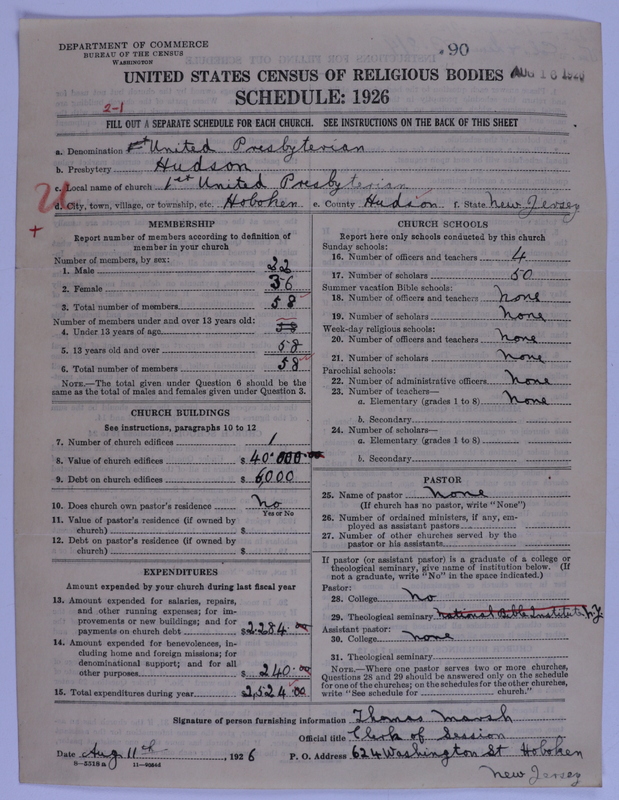 DEPARTMENT OF COMMERCE
BUREAU OF THE CENSUS
WASHINGTON
90
UNITED STATES CENSUS OF RELIGIOUS BODIES
AUG 16 1926
SCHEDULE: 1926
2-1
FILL OUT A SEPARATE SCHEDULE FOR EACH CHURCH. SEE INSTRUCTIONS ON THE BACK OF THIS SHEET
a. Denomination United Presbyterian
b. Presbytery Hudson
c. Local name of church 1st United Presbyterian
d. City, town, village, or township, etc. Hoboken e. County Hudson f. State New Jersey
MEMBERSHIP
Report number of members according to definition of
member in your church
Number of members, by sex:
1. Male 22
2. Female 36
3. Total number of members 58
Number of members under and over 13 years old:
4. Under 13 years of age 58
5. 13 years old and over 58
6. Total number of members 58
NOTE.—The total given under Question 6 should be the
same as the total of males and females given under Question 3.
CHURCH BUILDINGS
See instructions, paragraphs 10 to 12
7. Number of church edifices 1
8. Value of church edifices $ 40.000.00
9. Debt on church edifices $ 6,000
10. Does church own pastor's residence No
Yes or No
11. Value of pastor's residence (if owned by
church) $
12. Debt on pastor's residence (if owned by
church) $
EXPENDITURES
Amount expended by your church during last fiscal year
13. Amount expended for salaries, repairs,
and other running expenses; for im-
provements or new buildings; and for
payments on church debt $ 2284.00
14. Amount expended for benevolences, in-
cluding home and foreign missions; for
denominational support; and for all
other purposes $ 240.00
15. Total expenditures during year $ 2,524.00
CHURCH SCHOOLS
Report here only schools conducted by this church
Sunday schools:
16. Number of officers and teachers 4
17. Number of scholars 50
Summer vacation Bible schools:
18. Number of officers and teachers None
19. Number of scholars None
Week-day religious schools:
20. Number of officers and teachers None
21. Number of scholars None
Parochial schools:
22. Number of administrative officers None
23. Number of teachers—
a. Elementary (grades 1 to 8) None
b. Secondary
24. Number of scholars—
a. Elementary (grades 1 to 8)
b. Secondary
PASTOR
25. Name of pastor None
(If church has no pastor, write "None")
26. Number of ordained ministers, if any, em-
ployed as assistant pastors
27. Number of other churches served by the
pastor or his assistants
If pastor (or assistant pastor) is a graduate of a college or
theological seminary, give name of institution below. (If
not a graduate, write "No" in the space indicated.)
Pastor:
28. College No
29. Theological seminary National Bible Institute N.Y.
Assistant pastor:
30. College None
31. Theological seminary
NOTE.—Where one pastor serves two or more churches,
Questions 28 and 29 should be answered only on the schedule
for one of the churches; on the schedules for the other churches,
write "See schedule for church."
Signature of person furnishing information Thomas Marsh
Official title Clerk of Session
Date Aug 11th, 1926 P. O. Address 624 Washington St Hoboken
8-5518a 11-9
New Jersey